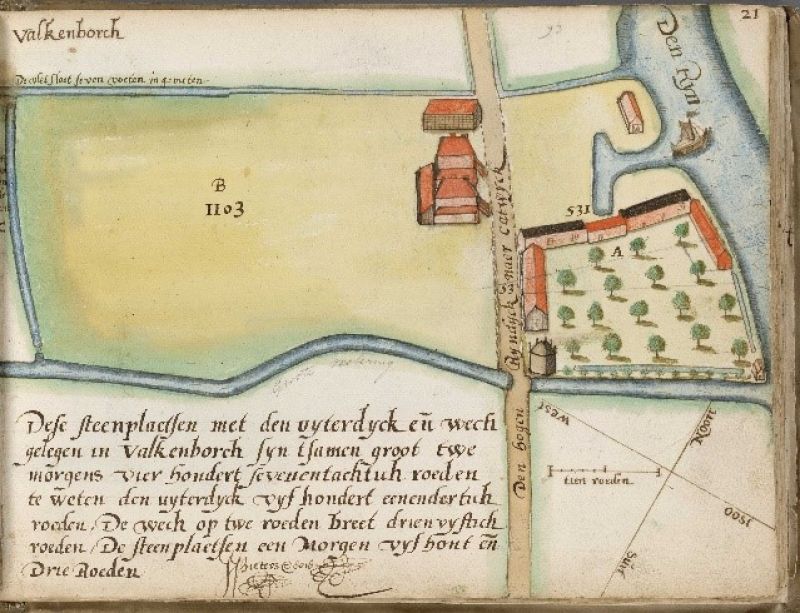 Valkenborch
21
De vliet sloot seven voeten in 4: pleten
Den Ryn
B
1103
531
A
53
Den hogen Ryndyck naer Catwyck
West
Noort
Oost
Suyt
tien roeden
Dese steenplaetsen met den uyterdyck eñ wech
gelegen in Valkenborch syn tsamen groot twe
morgens vier hondert sevenentachtich roeden
te weten den uyterdyck vyf hondert eenendertich
roeden. De wech op twe roeden breet drienvyftich
roeden. De steenplaetsen een Morgen vyf hont eñ
Drie Roeden